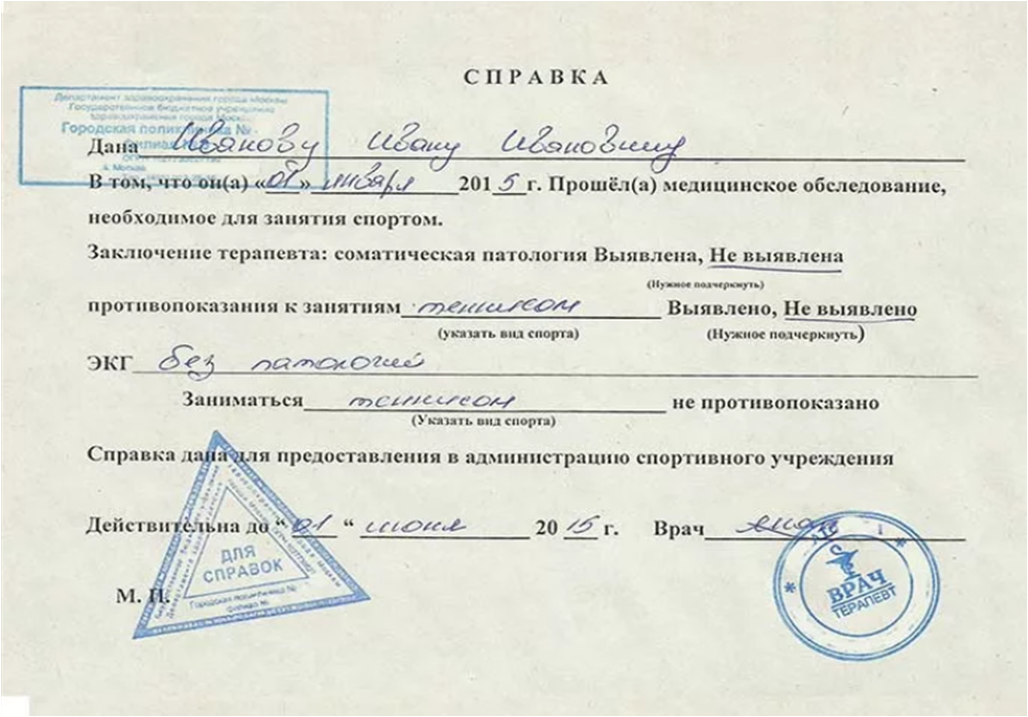 СПРАВКА
Департамент здравоохранения города Москвы
Государственное бюджетное учреждение
здравоохранения города Москвы
Городская поликлиника №
филиал №
г. Москва
Дана Иванову Ивану Ивановичу
В том, что он(а) «01» января 2015 г. Прошёл(а) медицинское обследование,
необходимое для занятия спортом.
Заключение терапевта: соматическая патология Выявлена, Не выявлена
(Нужное подчеркнуть)
противопоказания к занятиям теннисом Выявлено, Не выявлено
(указать вид спорта) (Нужное подчеркнуть)
ЭКГ без патологий
Заниматься теннисом не противопоказано
(Указать вид спорта)
Справка дана для предоставления в администрацию спортивного учреждения
Действительна до “ 01 “ июня 20 15 г. Врач
М. П.
ДЛЯ
СПРАВОК
Городская поликлиника №
филиал №
ВРАЧ
ТЕРАПЕВТ